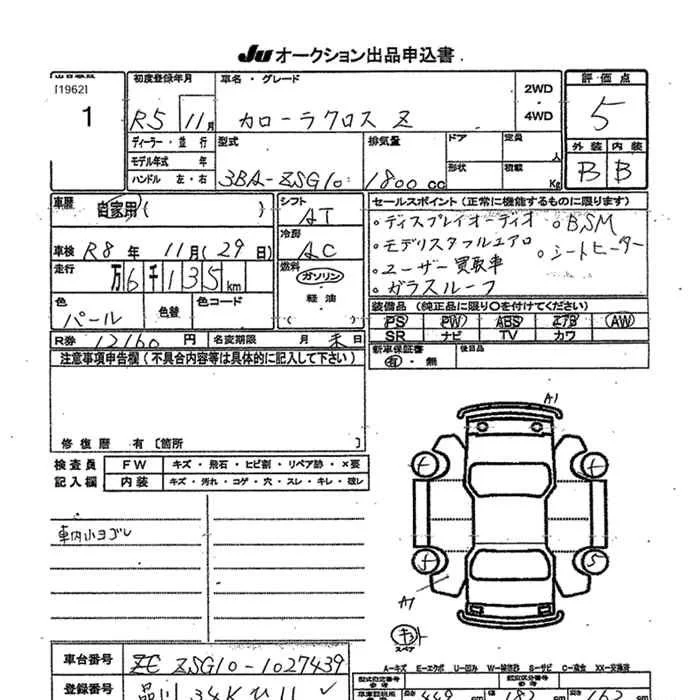 JU オークション出品申込書
[1962]
1
初度登録年月
R5 11月
車名・グレード
カローラクロス Z
2WD
4WD
評価点
5
外装 内装
B B
ディーラー・並行
モデル年式 年
ハンドル 左・右
型式
3BA-ZSG10
排気量
1800 cc
ドア
形状
定員
人
積載
Kg
車歴
自家用( )
シフト
AT
車検 R8年 11月(29日)
冷房
AC
走行
万6千135km
燃料
ガソリン
軽油
( )
色
パール
色替
色コード
R券 12160円
名変期限 月 末日
セールスポイント(正常に機能するものに限ります)
。ディスプレイオーディオ 。BSM
。モデリスタフルエアロ 。シートヒーター
。ユーザー買取車
。ガラスルーフ
装備品(純正品に限り○を付けてください)
PS PW ABS エアB AW
SR ナビ TV カワ
新車保証書
有・無
後日品
注意事項申告欄(不具合内容等は具体的に記入して下さい)
修復歴 有〔箇所 〕
検査員
記入欄
FW キズ・飛石・ヒビ割・リペア跡・×要
内装 キズ・汚れ・コゲ・穴・スレ・キレ・破レ
車内小ヨゴレ
A1
5
A1
スペア
車台番号 ZSG10-1027439
登録番号 品川
A-キズ E-エクボ U-凹み
型式指定番号
類別区分番号
449 cm 182 cm 162 cm